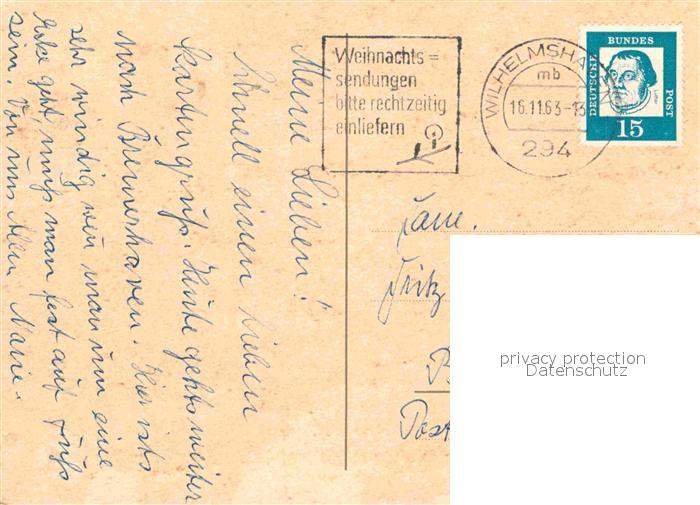 Meine Lieben!
Schnell einen lieben
Kartengruß. Heute gehts weiter
nach Bremerhaven. Hier ists
sehr windig wen man um eine
Eke geht muß man fest auf Fuß
sein. Von uns Allen Marie.
Weihnachts=
sendungen
bitte rechtzeitig
einliefern
WILHELMSHA
mb
16.11.63-13
294
DEUTSCHE BUNDES POST
15
Fam.
Fritz
Post
privacy protection
Datenschutz